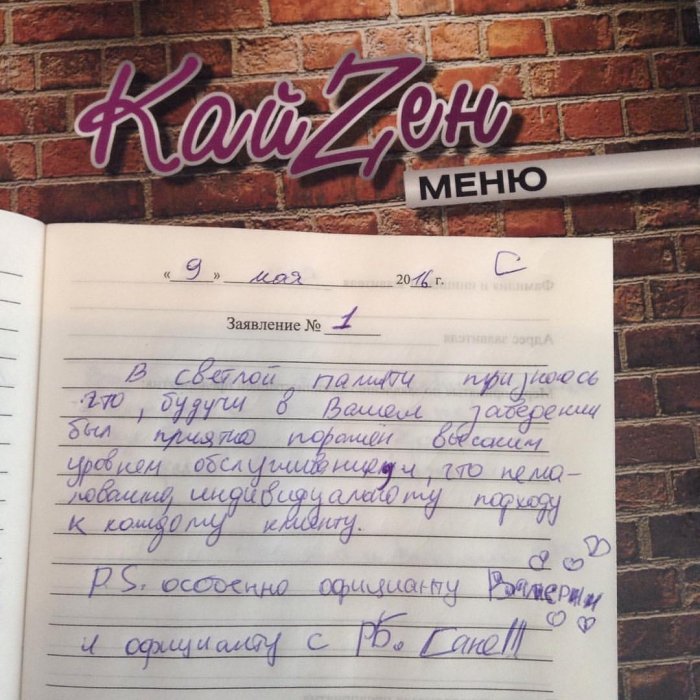 КайZен
МЕНЮ
« 9 » мая 2016 г.
Заявление № 1
В светлой памяти признаюсь
что, будучи в Вашем заведении
был приятно поражён высоким
уровнем обслуживания, что нема-
ловажно, индивидуальному подходу
к каждому клиенту.
P.S. особенно официанту
и официанту с РБ. Сане!!!